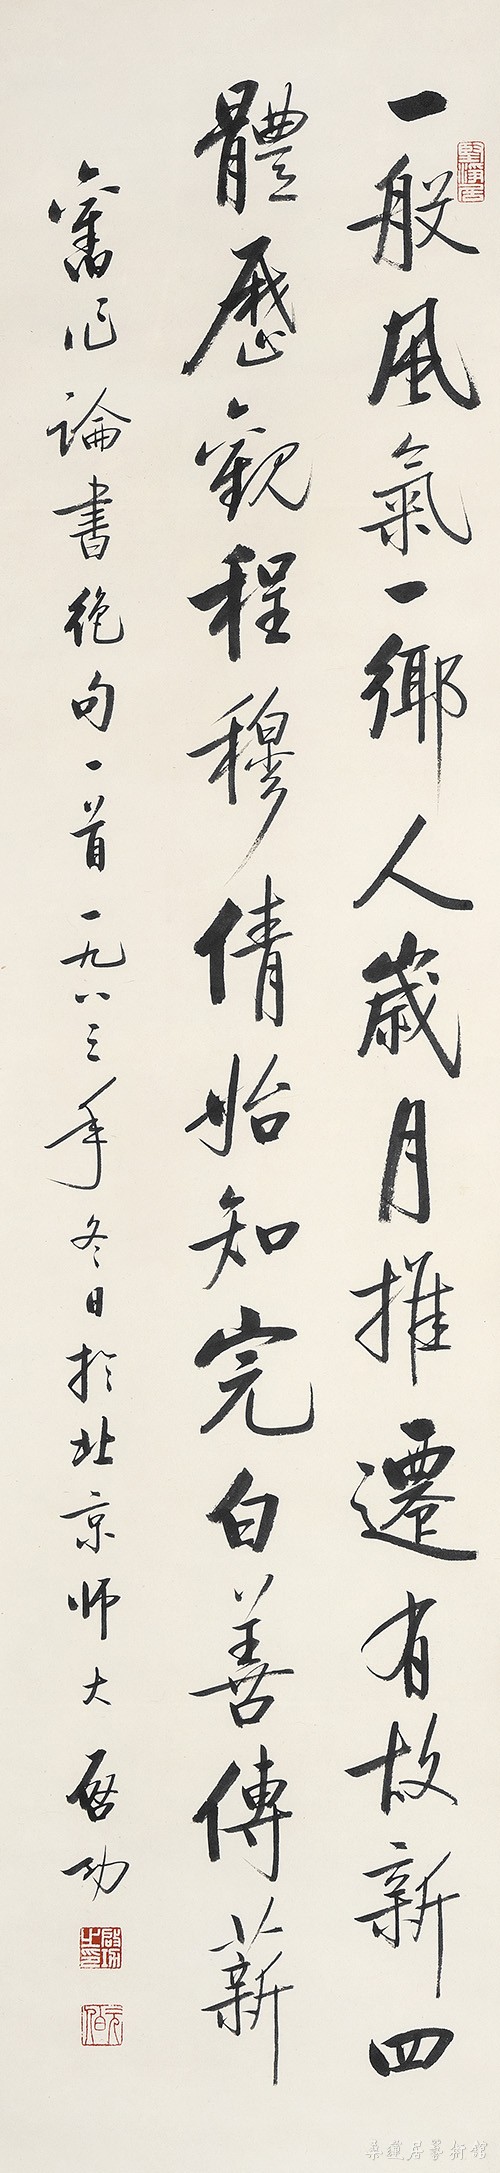 一般風氣一鄉人歲月推遷有故新四
體歷觀程穆倩始知完白善傳薪
舊作論書絕句一首一九八三年冬日於北京師大 啓功
堅淨居
啟功之印
元白